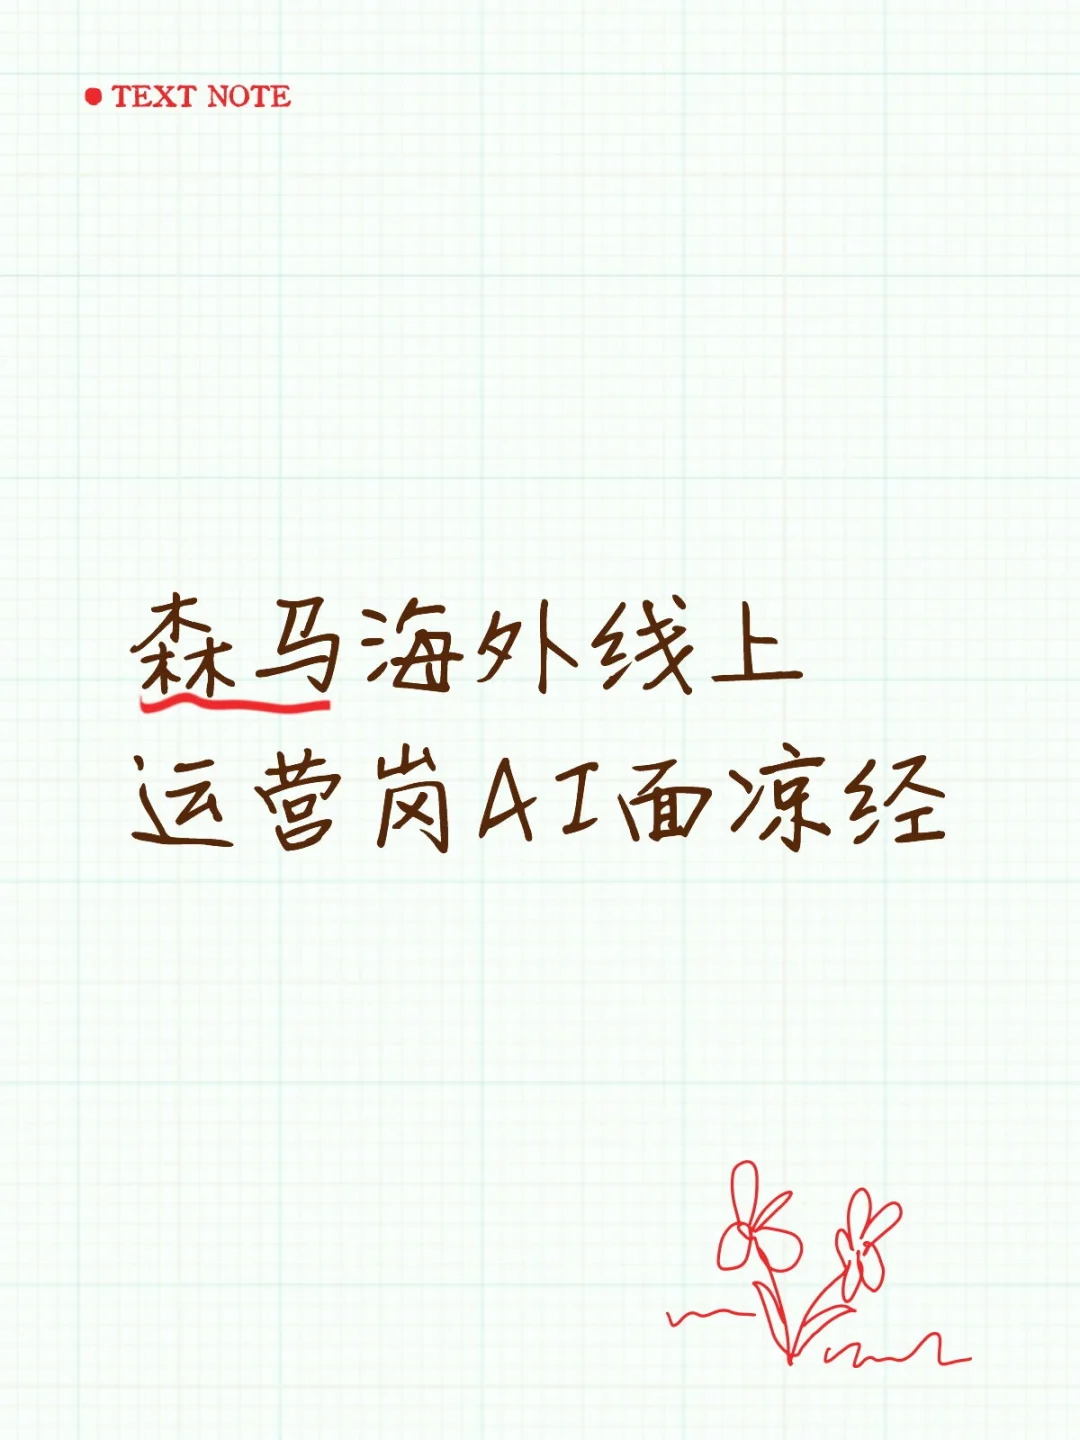 TEXT NOTE
森马海外线上
运营岗AI面凉经